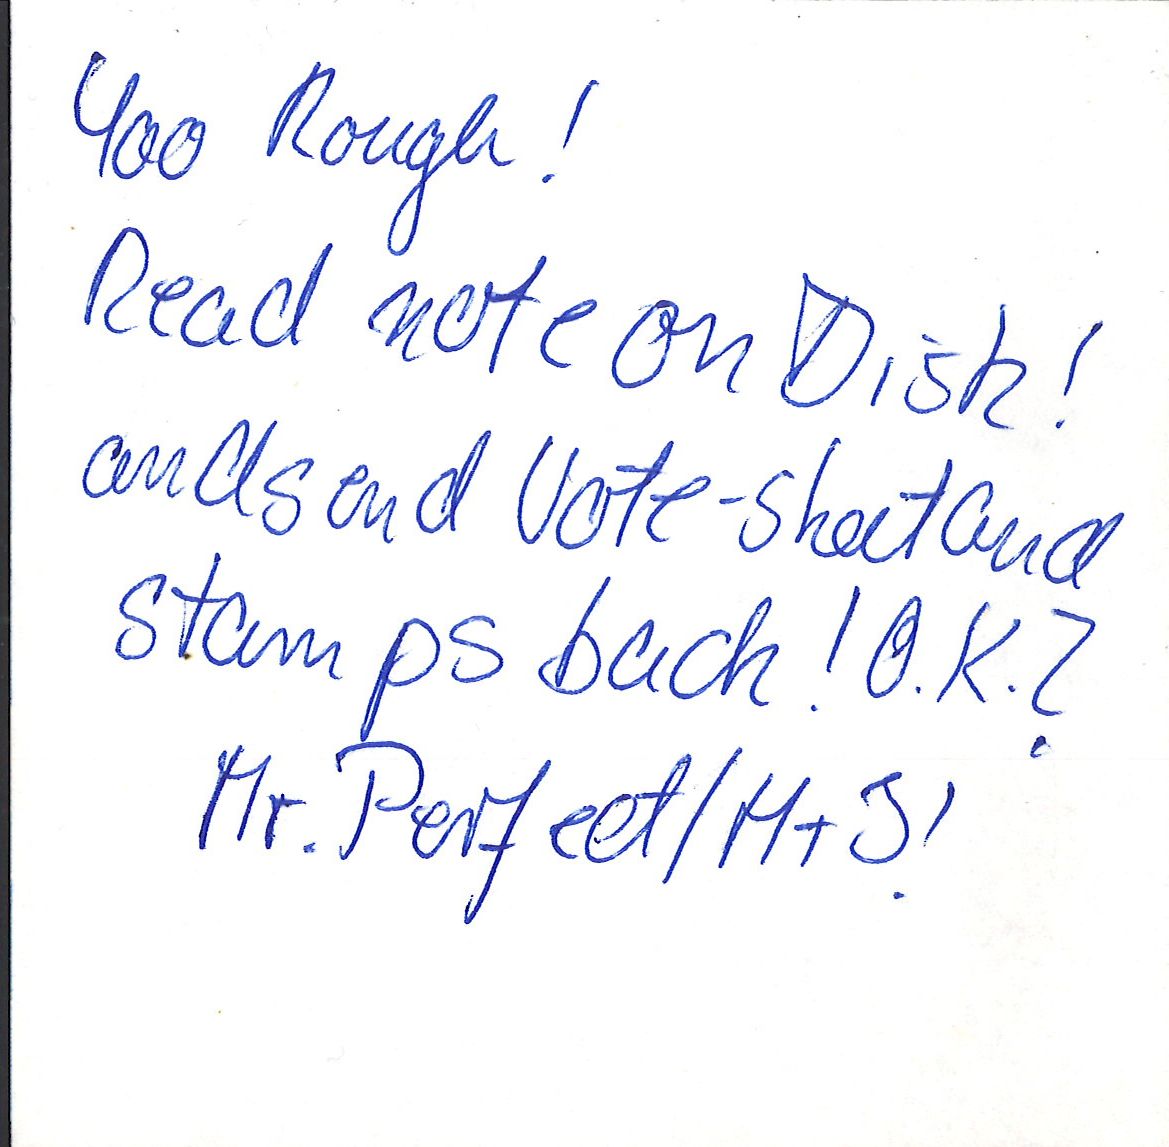 Yoo Rough!
Read note on Disk!
and send Vote-sheet and
stamps back! O.K.?
Mr. Perfect/M+S!